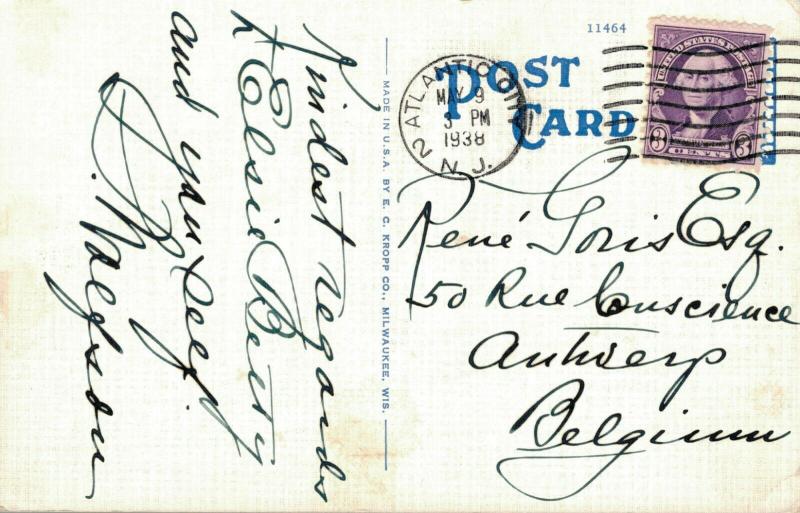 11464
POST
CARD
2 ATLANTIC CITY
MAY 9
3 PM
1938
N. J.
UNITED STATES POSTAGE
3 CENTS 3
MADE IN U.S.A. BY E. C. KROPP CO., MILWAUKEE, WIS.
Kindest regards
Elsie Betty
and yourself
René Goris Esq.
50 Rue Conscience
Antwerp
Belgium